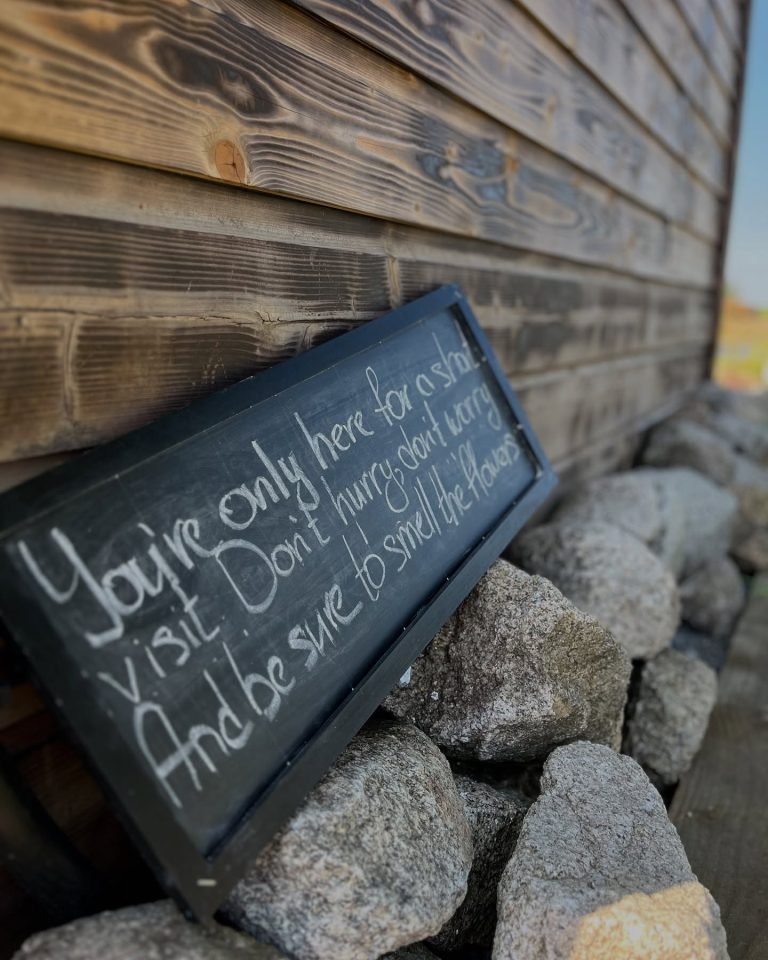 You're only here for a short
visit. Don't hurry, don't worry
And be sure to smell the flowers